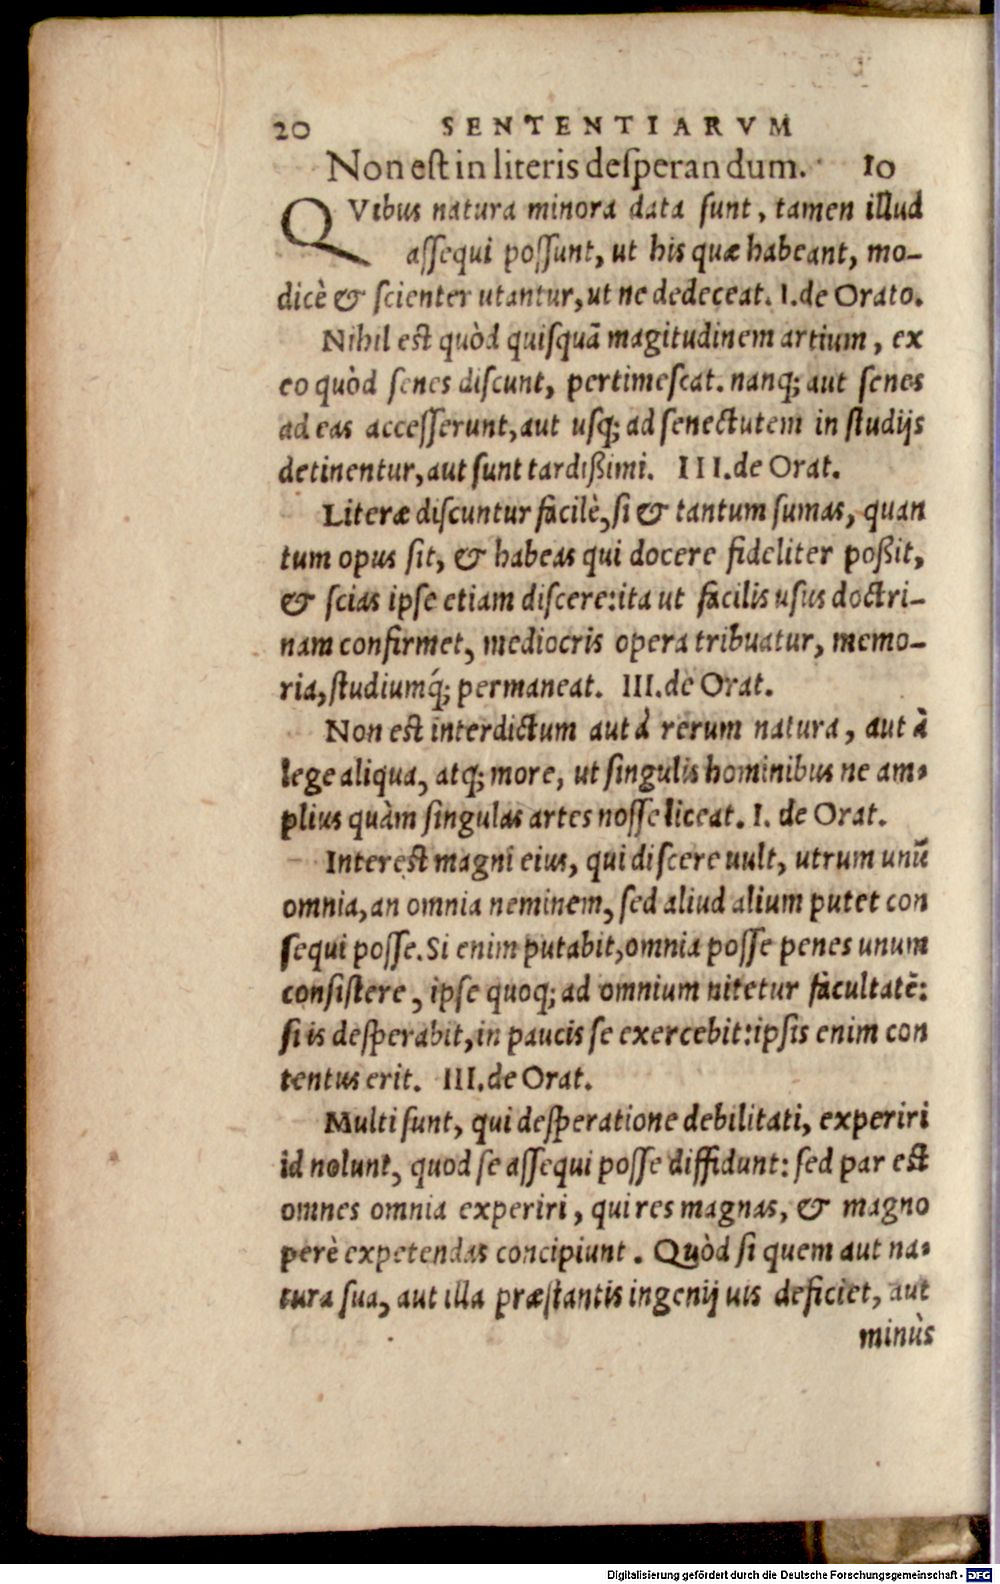 20 SENTENTIARVM
Non est in literis desperandum. 10
QVibus natura minora data sunt, tamen illud
assequi possunt, ut his quæ habeant, mo-
dicè & scienter utantur, ut ne dedeceat. I. de Orato.
Nihil est quòd quisquã magitudinem artium, ex
eo quòd senes discunt, pertimescat. nanq; aut senes
ad eas accesserunt, aut usq; ad senectutem in studijs
detinentur, aut sunt tardißimi. III. de Orat.
Literæ discuntur facilè, si & tantum sumas, quan
tum opus sit, & habeas qui docere fideliter poßit,
& scias ipse etiam discere: ita ut facilis usus doctri-
nam confirmet, mediocris opera tribuatur, memo-
ria, studiumq́; permaneat. III. de Orat.
Non est interdictum aut à rerum natura, aut à
lege aliqua, atq; more, ut singulis hominibus ne am-
plius quàm singulas artes nosse liceat. I. de Orat.
Interest magni eius, qui discere uult, utrum unũ
omnia, an omnia neminem, sed aliud alium putet con
sequi posse. Si enim putabit, omnia posse penes unum
consistere, ipse quoq; ad omnium nitetur facultatẽ:
si is desperabit, in paucis se exercebit: ipsis enim con
tentus erit. III. de Orat.
Multi sunt, qui desperatione debilitati, experiri
id nolunt, quod se assequi posse diffidunt: sed par est
omnes omnia experiri, qui res magnas, & magno
perè expetendas concipiunt. Quòd si quem aut na-
tura sua, aut illa præstantis ingenij uis deficiet, aut
minùs
Digitalisierung gefördert durch die Deutsche Forschungsgemeinschaft - DFG